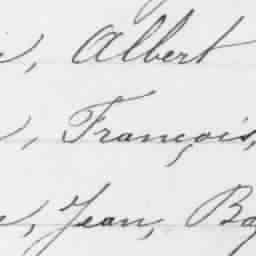 , Albert
, François,
, Jean, Ba